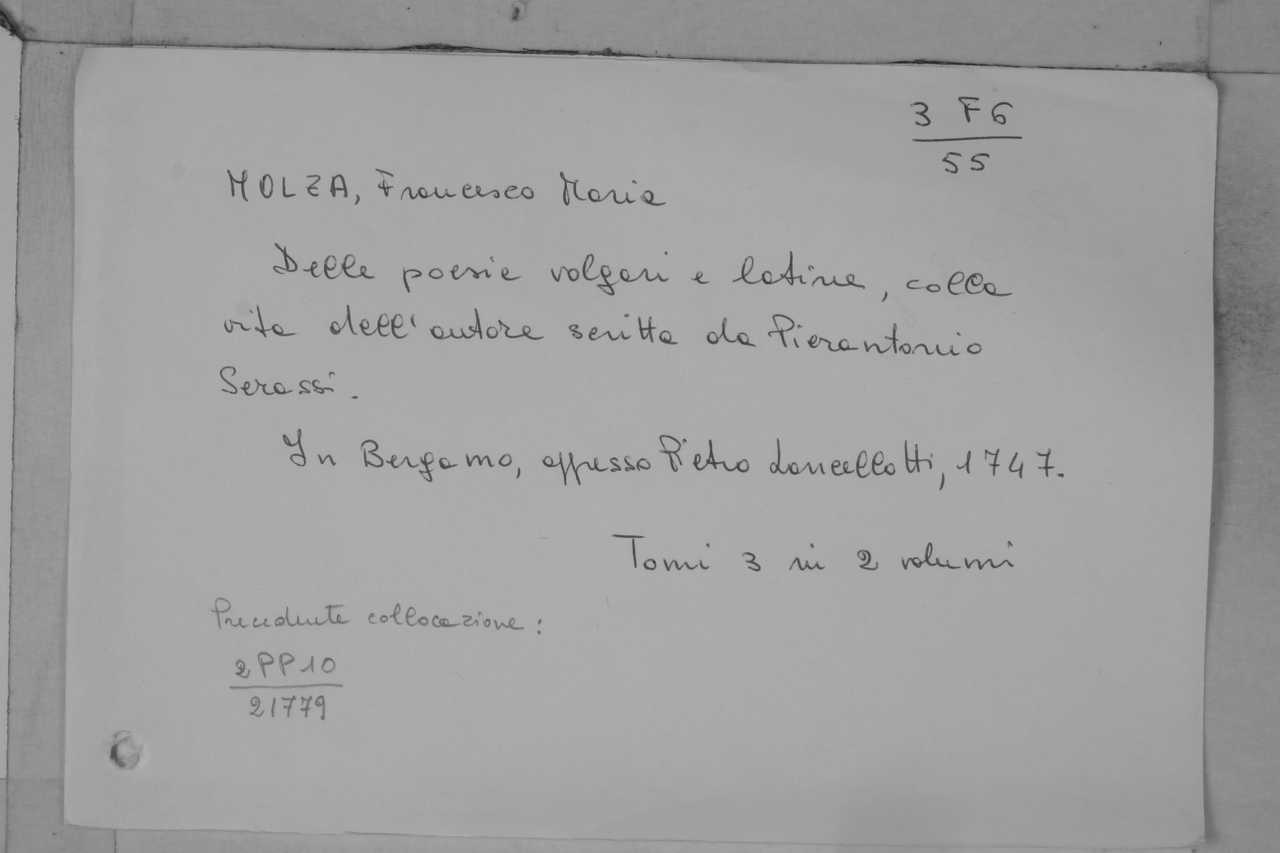 3 F6
55
MOLZA, Francesco Maria
Delle poesie volgari e latine, colla
vita dell'autore scritta da Pierantonio
Serassi.
In Bergamo, appresso Pietro Lancellotti, 1747.
Tomi 3 in 2 volumi
Precedente collocazione:
2PP10
21779